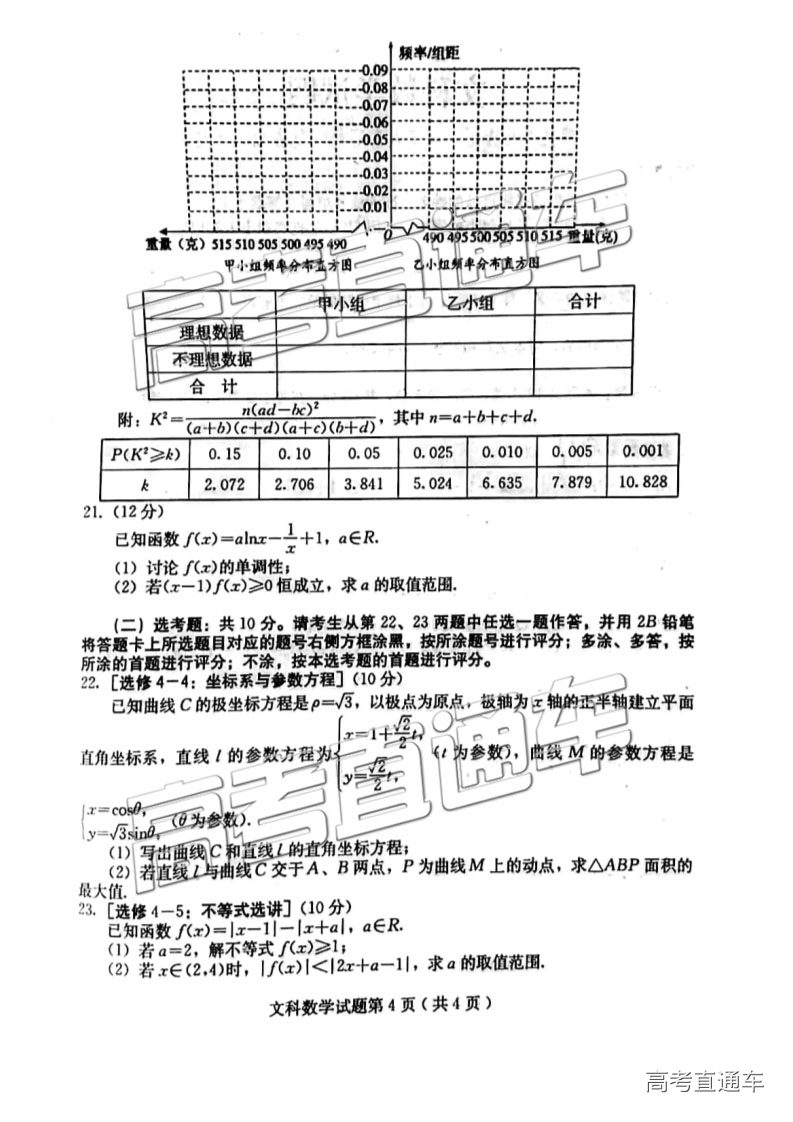 频率/组距
0.09
0.08
0.07
0.06
0.05
0.04
0.03
0.02
0.01
重量（克）515 510 505 500 495 490 0 490 495 500 505 510 515 重量(克)
甲小组频率分布直方图 乙小组频率分布直方图
甲小组 乙小组 合计
理想数据
不理想数据
合 计
附：K²=n(ad−bc)²/((a+b)(c+d)(a+c)(b+d))，其中 n=a+b+c+d.
P(K²≥k) 0.15 0.10 0.05 0.025 0.010 0.005 0.001
k 2.072 2.706 3.841 5.024 6.635 7.879 10.828
21.（12分）
已知函数 f(x)=alnx−1/x+1，a∈R.
(1) 讨论 f(x)的单调性；
(2) 若(x−1)f(x)≥0恒成立，求 a 的取值范围.
(二) 选考题：共 10 分。请考生从第 22、23 两题中任选一题作答，并用 2B 铅笔
将答题卡上所选题目对应的题号右侧方框涂黑，按所涂题号进行评分；多涂、多答，按
所涂的首题进行评分；不涂，按本选考题的首题进行评分。
22.［选修 4－4：坐标系与参数方程］(10 分)
已知曲线 C 的极坐标方程是ρ=√3，以极点为原点，极轴为 x 轴的正半轴建立平面
直角坐标系，直线 l 的参数方程为{x=1+√2/2t，y=√2/2t，(t 为参数)，曲线 M 的参数方程是
{x=cosθ，y=√3sinθ，(θ为参数).
(1) 写出曲线 C 和直线 l 的直角坐标方程；
(2) 若直线 l 与曲线 C 交于 A、B 两点，P 为曲线 M 上的动点，求△ABP 面积的
最大值.
23.［选修 4－5：不等式选讲］(10 分)
已知函数 f(x)=|x−1|−|x+a|，a∈R.
(1) 若 a=2，解不等式 f(x)≥1；
(2) 若 x∈(2,4)时，|f(x)|<|2x+a−1|，求 a 的取值范围.
文科数学试题第 4 页（共 4 页）
高考直通车
高考直通车
高考直通车